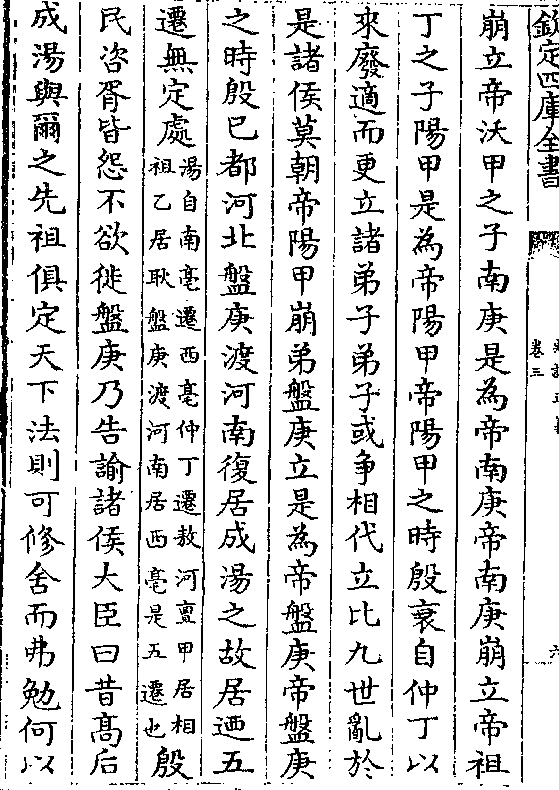 欽定四庫全書
卷三
六
崩立帝沃甲之子南庚是為帝南庚帝南庚崩立帝祖
丁之子陽甲是為帝陽甲帝陽甲之時殷衰自仲丁以
來廢適而更立諸弟子弟子或争相代立比九世亂於
是諸侯莫朝帝陽甲崩弟盤庚立是為帝盤庚帝盤庚
之時殷已都河北盤庚渡河南復居成湯之故居迺五
遷無定處
湯自南亳遷西亳仲丁遷敖河亶甲居相
祖乙居耿盤庚渡河南居西亳是五遷也
殷
民咨胥皆怨不欲徙盤庚乃告諭諸侯大臣曰昔髙后
成湯與爾之先祖俱定天下法則可修舍而弗勉何以